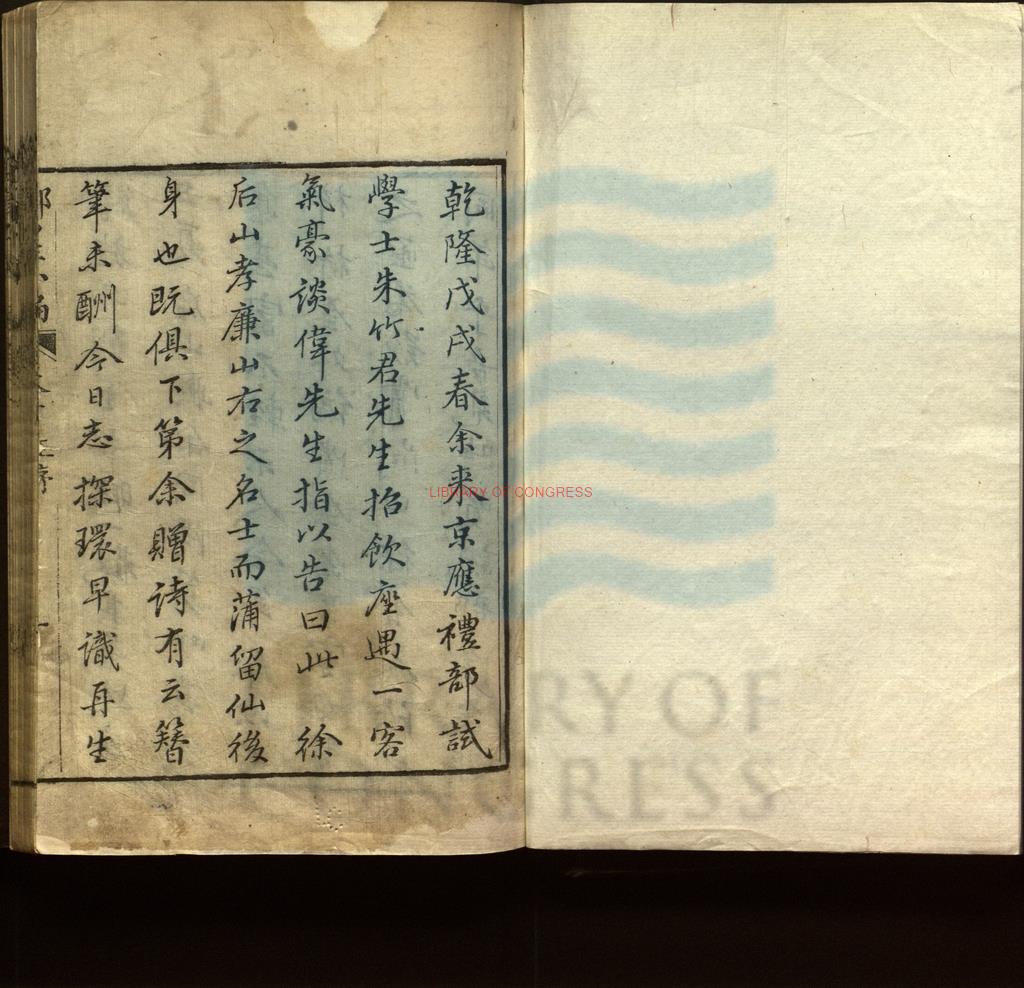 乾隆戊戌春余来京應禮部試
學士朱竹君先生招飲座遇一客
氣豪談偉先生指以告曰此 徐
后山孝廉山右之名士而蒲留仙後
身也既俱下第余贈诗有云簪
筆未酬今日志探環早識再生
LIBRARY OF CONGRESS